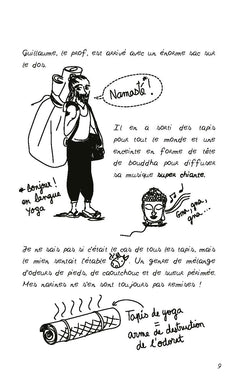 Guillaume, le prof, est arrivé avec un énorme sac sur
le dos.
Namasté*!
Il en a sorti des tapis
pour tout le monde et une
enceinte en forme de tête
de bouddha pour diffuser
sa musique super chiante.
* Bonjour!
en langue
yoga
Gna, gna,
gna...
Je ne sais pas si c'était le cas de tous les tapis, mais
le mien sentait l'étable. Un genre de mélange
d'odeurs de pieds, de caoutchouc et de sueur périmée.
Mes narines ne s'en sont toujours pas remises !
Tapis de yoga
=
arme de destruction
de l'odorat
9